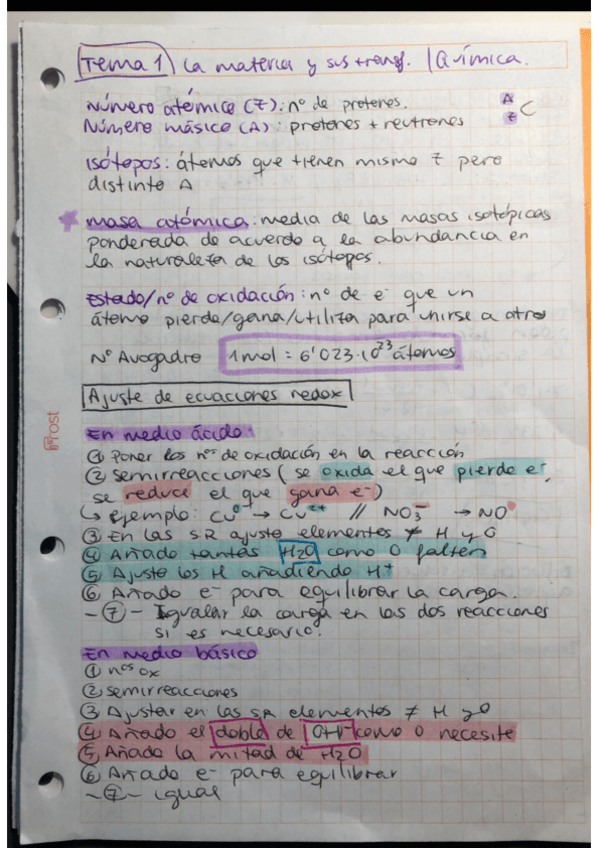 Tema 1 La materia y sus transf. | Química.
Número atómico (Z): nº de protones.
Número másico (A): protones + neutrones
A
Z C
Isótopos: átomos que tienen mismo Z pero
distinto A
masa atómica: media de las masas isotópicas
ponderada de acuerdo a la abundancia en
la naturaleza de los isótopos.
Estado/nº de oxidación: nº de e⁻ que un
átomo pierde/gana/utiliza para unirse a otro
Nº Avogadro 1mol = 6'023·10²³ átomos
Ajuste de ecuaciones redox
En medio ácido:
① Poner los nºs de oxidación en la reacción
② semirreacciones (se oxida el que pierde e⁻,
se reduce el que gana e⁻)
↳ ejemplo: Cu⁰ → Cu²⁺ // NO₃⁻ → NO
③ En las SR ajusto elementos ≠ H y O
④ Añado tantas H2O como O falten
⑤ Ajusto los H añadiendo H⁺
⑥ Añado e⁻ para equilibrar la carga.
-⑦- Igualar la carga en las dos reacciones
si es necesario.
En medio básico
① nºs ox
② semirreacciones
③ Ajustar en las SR elementos ≠ H y O
④ Añado el doble de OH⁻ como O necesite
⑤ Añado la mitad de H2O
⑥ Añado e⁻ para equilibrar
-⑦- igual
Prost